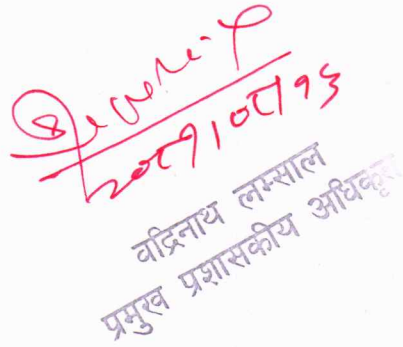 २०८१।०८।१६
वद्रिनाथ लम्साल
प्रमुख प्रशासकीय अधिकृत